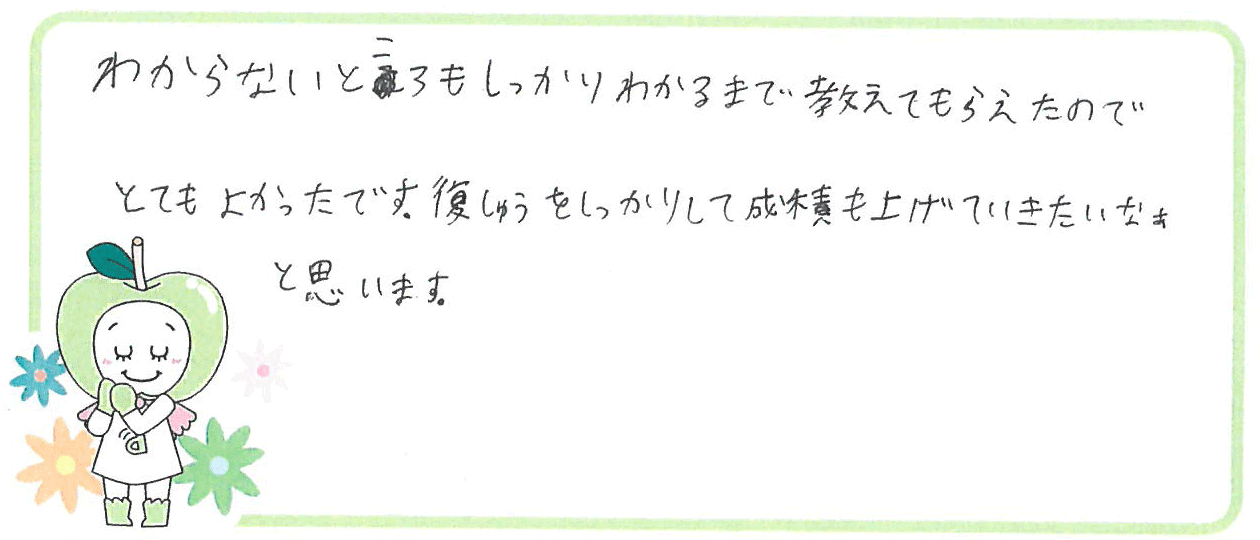 わからないところもしっかりわかるまで教えてもらえたので
とてもよかったです。復しゅうをしっかりして成積も上げていきたいなぁ
と思います。